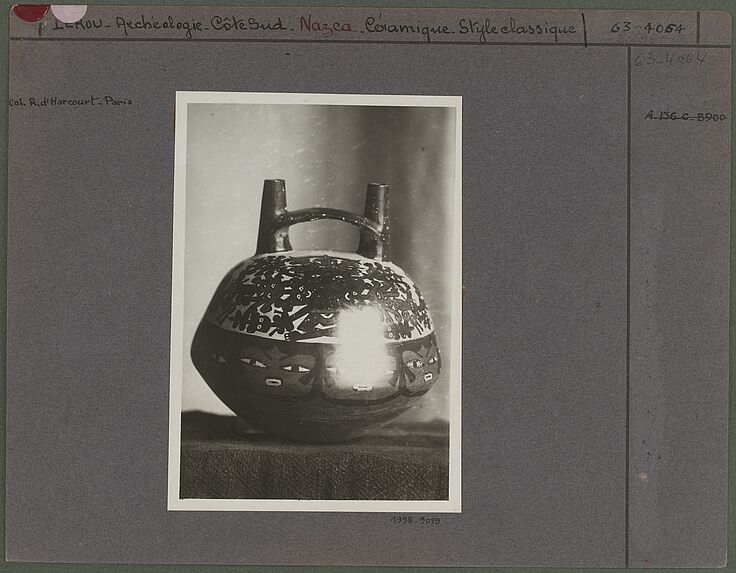 PÉROU - Archéologie - Côte Sud - Nazca. Céramique. Style classique
63-4064
63-4064
A-136-C-B900
Col. R. d'Harcourt - Paris
1998-9039